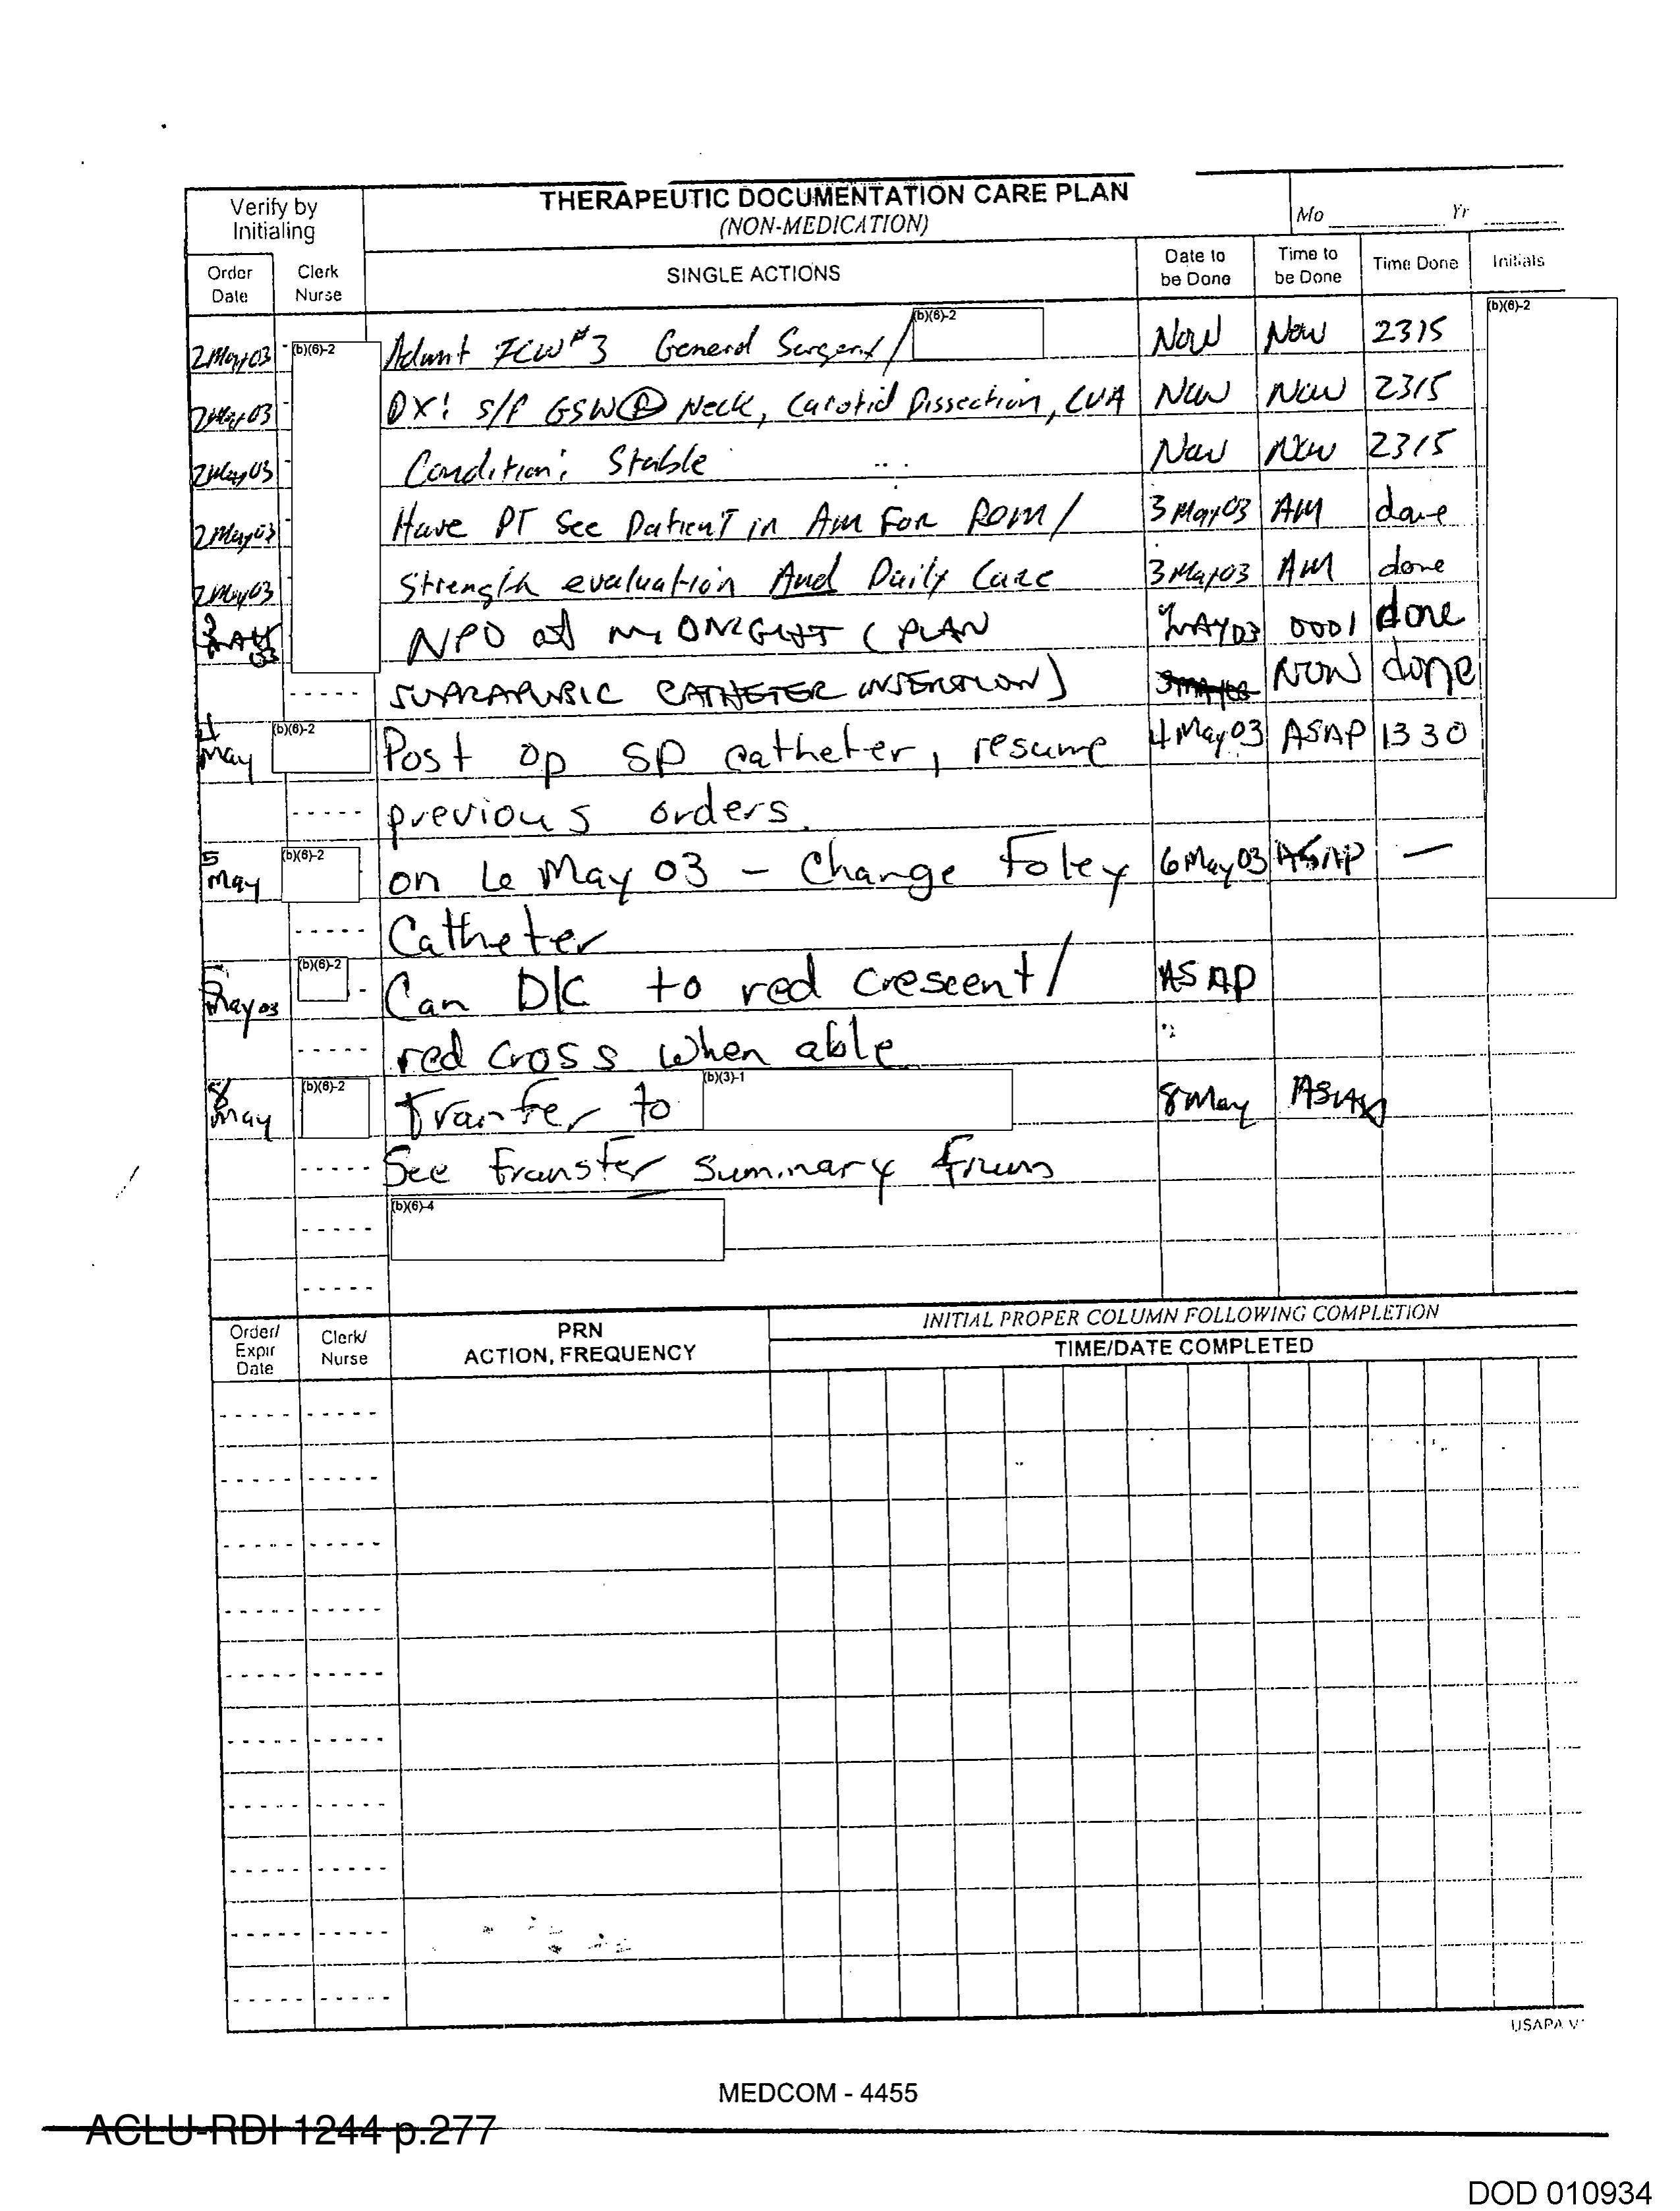 THERAPEUTIC DOCUMENTATION CARE PLAN
(NON-MEDICATION)
Mo Yr
Verify by Initialing
Order Date Clerk Nurse SINGLE ACTIONS Date to be Done Time to be Done Time Done Initials
2May03 (b)(6)-2 Admit ICW #3 General Surgery/ (b)(6)-2 Now Now 2315 (b)(6)-2
2May03 DX: s/p GSW Ⓡ Neck, Carotid Dissection, CVA Now Now 2315
2May03 Condition: Stable Now Now 2315
2May03 Have PT See Patient in Am For ROM/ 3May03 AM done
2May03 Strength evaluation And Daily Care 3May03 AM done
NPO at MIDNIGHT (PLAN MAY03 0001 done
SUPRAPUBIC CATHETER INSERTION) NOW done
4 May (b)(6)-2 Post op SP catheter, resume 4May03 ASAP 1330
previous orders.
5 May (b)(6)-2 on 6 May 03 – Change Foley 6May03 ASAP —
Catheter
May 03 (b)(6)-2 Can D/C to red crescent/ ASAP
red cross when able
8 May (b)(6)-2 Tranfer to (b)(3)-1 8 May ASAP
See transfer summary from
(b)(6)-4
Order/ Expir Date Clerk/ Nurse PRN ACTION, FREQUENCY INITIAL PROPER COLUMN FOLLOWING COMPLETION
TIME/DATE COMPLETED
USAPA V1
MEDCOM - 4455
ACLU-RDI 1244 p.277
DOD 010934